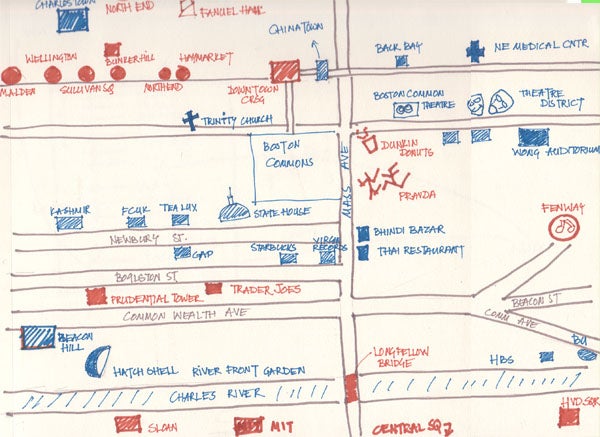 CHARLESTOWN
NORTH END
FANUEL HALL
CHINATOWN
BACK BAY
NE MEDICAL CNTR
WELLINGTON
BUNKERHILL
HAYMARKET
MALDEN
SULLIVAN SQ
NORTHEND
DOWNTOWN
CRSG
BOSTON COMMON
THEATRE
THEATRE
DISTRICT
TRINITY CHURCH
BOSTON
COMMONS
MASS AVE
DUNKIN
DONUTS
WONG AUDITORIUM
PRAVDA
KASHMIR
FCUK
TEALUX
STATE HOUSE
FENWAY
NEWBURY ST.
BHINDI BAZAR
GAP
STARBUCKS
VIRGIN
RECORDS
THAI RESTAURANT
BOYLSTON ST
PRUDENTIAL TOWER
TRADER JOES
BEACON ST
COMMON WEALTH AVE
COMM AVE
BEACON
HILL
LONGFELLOW
BRIDGE
HBS
BU
HATCH SHELL
RIVER FRONT GARDEN
CHARLES RIVER
SLOAN
MIT
CENTRAL SQ
HVD SQR